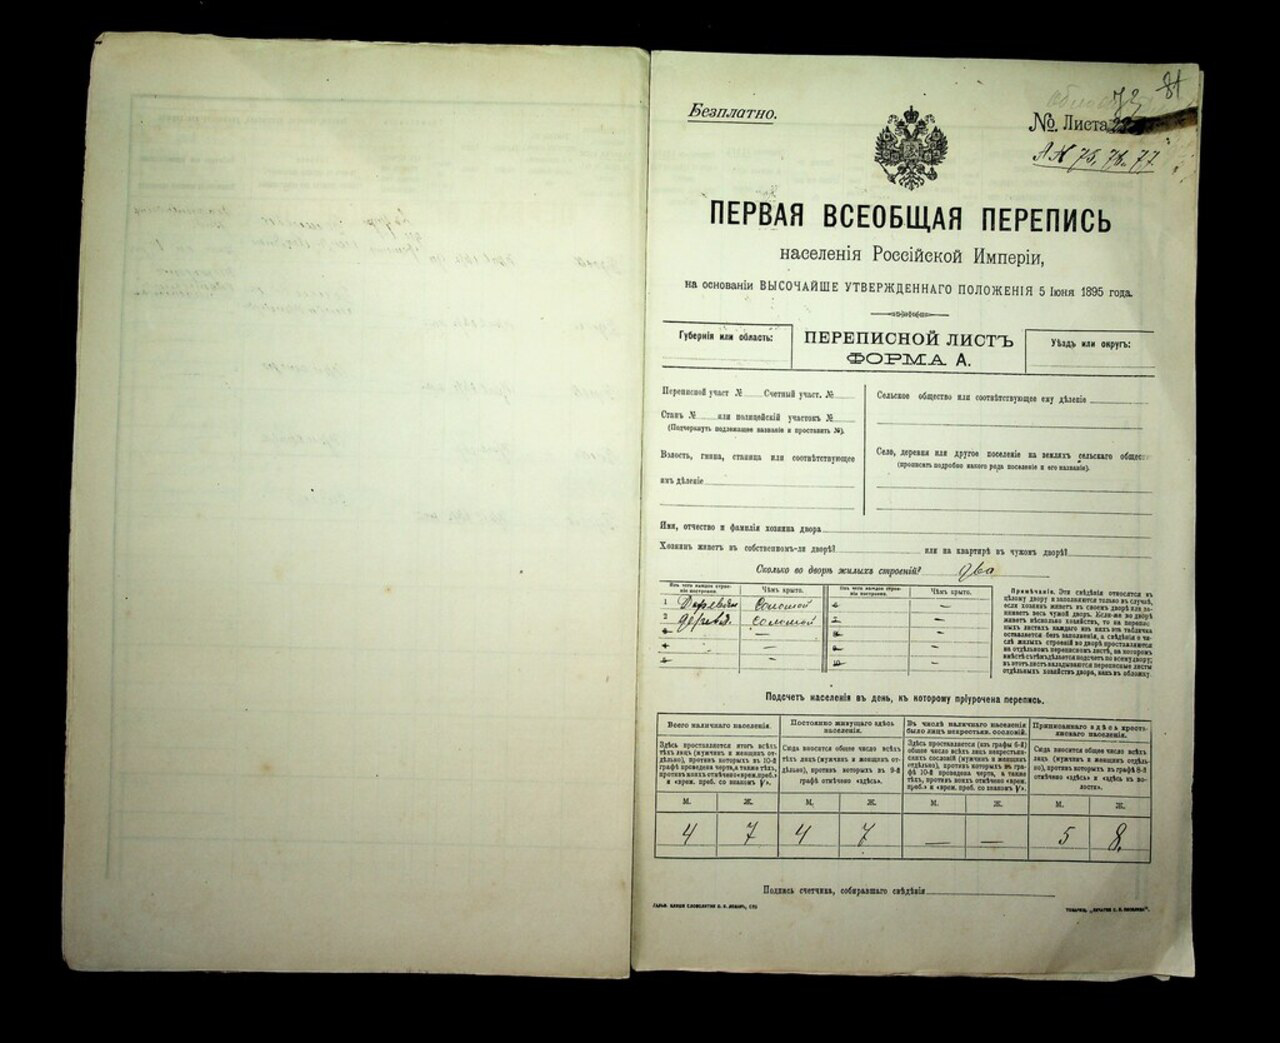 Безплатно.
81
№. Листа
73, 76, 77.
ПЕРВАЯ ВСЕОБЩАЯ ПЕРЕПИСЬ
населенія Россійской Имперіи,
на основаніи ВЫСОЧАЙШЕ УТВЕРЖДЕННАГО ПОЛОЖЕНІЯ 5 Іюня 1895 года.
Губернія или область:
ПЕРЕПИСНОЙ ЛИСТЪ
ФОРМА А.
Уѣздъ или округъ:
Переписной участ № Счетный участ. №
Станъ № или полицейскій участокъ №
(Подчеркнуть подлежащее названіе и проставить №).
Волость, гмина, станица или соотвѣтствующее
имъ дѣленіе
Сельское общество или соотвѣтствующее ему дѣленіе
Село, деревня или другое поселеніе на земляхъ сельскаго общес
(прописать подробно какого рода поселеніе и его названіе).
Имя, отчество и фамилія хозяина двора
Хозяинъ живетъ въ собственномъ-ли дворѣ? или на квартирѣ въ чужомъ дворѣ?
Сколько во дворѣ жилыхъ строеній? два
Изъ чего каждое строеніе построено.
Чѣмъ крыто.
Изъ чего каждое строеніе построено.
Чѣмъ крыто.
1 Деревян Соломой 6 —
2 Деревя. соломой 7 —
3 — 8 —
4 — 9 —
5 — 10 —
Примѣчаніе. Эти свѣдѣнія относятся къ
цѣлому двору и заполняются только въ случаѣ,
если хозяинъ живетъ въ своемъ дворѣ или занимаетъ
весь чужой дворъ. Если-же во дворѣ
живетъ нѣсколько хозяйствъ, то на переписныхъ
листахъ каждаго изъ нихъ эта табличка
оставляется безъ заполненія, а свѣдѣнія о числѣ
жилыхъ строеній во дворѣ проставляются
на отдѣльномъ переписномъ листѣ, на которомъ
вмѣстѣ съ тѣмъ дѣлается подсчетъ по всему двору;
въ этотъ листъ вкладываются переписные листы
отдѣльныхъ хозяйствъ двора, какъ въ обложку.
Подсчетъ населенія въ день, къ которому пріурочена перепись.
Всего наличнаго населенія.
Здѣсь проставляется итогъ всѣхъ
тѣхъ лицъ (мужчинъ и женщинъ отдѣльно),
противъ которыхъ въ 10-й
графѣ проведена черта, а также тѣхъ,
противъ коихъ отмѣчено «врем. преб.»
и «врем. преб. со знакомъ V».
Постоянно живущаго здѣсь
населенія.
Сюда вносится общее число всѣхъ
тѣхъ лицъ (мужчинъ и женщинъ отдѣльно),
противъ которыхъ въ 9-й
графѣ отмѣчено «здѣсь».
Въ числѣ наличнаго населенія
было лицъ некрестьян. сословій.
Здѣсь проставляется (изъ графы 6-й)
общее число всѣхъ лицъ некрестьянскихъ
сословій (мужчинъ и женщинъ
отдѣльно), противъ которыхъ въ графѣ
10-й проведена черта, а также
тѣхъ, противъ коихъ отмѣчено «врем.
преб.» и «врем. преб. со знакомъ V».
Приписаннаго здѣсь крестьянскаго
населенія.
Сюда вносится общее число всѣхъ
лицъ (мужчинъ и женщинъ отдѣльно),
противъ которыхъ въ графѣ 8-й
отмѣчено «здѣсь» и «здѣсь въ волости».
М. Ж. М. Ж. М. Ж. М. Ж.
4 7 4 7 — — 5 8.
Подпись счетчика, собиравшаго свѣдѣнія